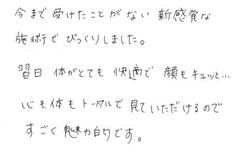 今まで受けたことがない新感覚な
施術でびっくりしました。
翌日 体がとても快適で 顔もキュッと…
心も体もトータルで見ていただけるので
すごく魅力的です。